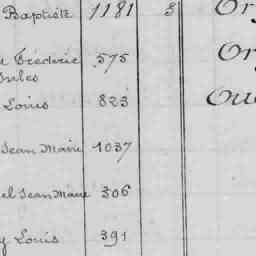 Baptiste 1181 3 Or
Frédéric 575
Jules Or
Louis 823 Ou
Jean Marie 1037
el Jean Marie 306
y Louis 391